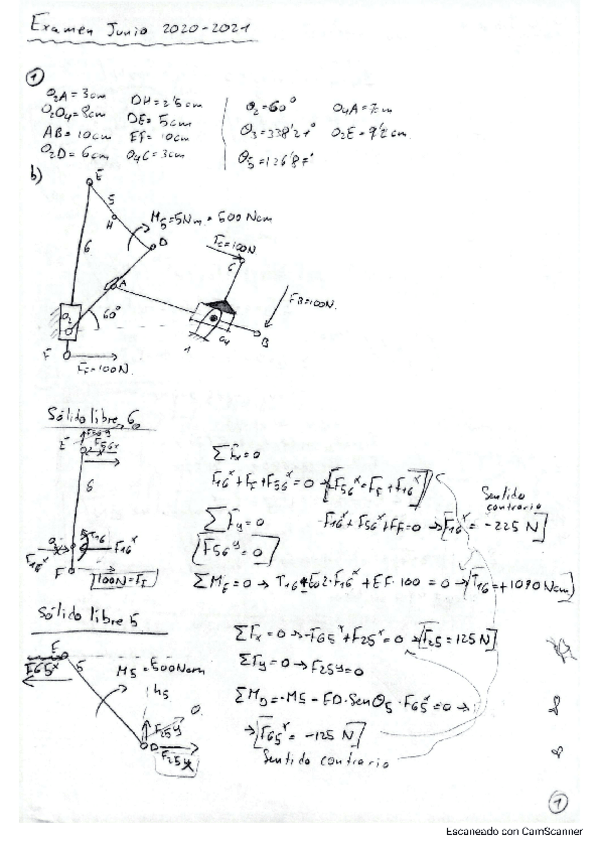 Examen Junio 2020-2021
1
O2A = 3cm
O2O4 = 8cm
AB = 10cm
O2D = 6cm
DH = 2'5cm
DE = 5cm
EF = 10cm
O4C = 3cm
θ2 = 60º
θ3 = 338'21º
θ5 = 126'87º
O4A = 7cm
O2E = 9'2cm
b)
E
5
H
M5 = 5Nm = 500Ncm
D
6
Fc = 100N
C
A
FB = 100N.
O2
60º
1
O4
B
F
FF = 100N.
Sólido libre 6
E
F56y
F56x
6
T16
F16x
F16x
F
100N = FF
ΣFx = 0
F16x + FF + F56x = 0 → F56x = FF + F16x
ΣFy = 0
F56y = 0
-F16x + F56x + FF = 0 → F16x = -225 N
Sentido
contrario
ΣME = 0 → T16 + EO2·F16x + EF·100 = 0 → T16 = +1070 Ncm
Sólido libre 5
F65x
E
5
M5 = 500Ncm
F25y
D
F25x
ΣFx = 0 → -F65x + F25x = 0 → F25 = 125N
ΣFy = 0 → F25y = 0
ΣMD = -M5 - ED·Senθ5·F65x = 0 →
→ F65x = -125 N
Sentido contrario
1
Escaneado con CamScanner